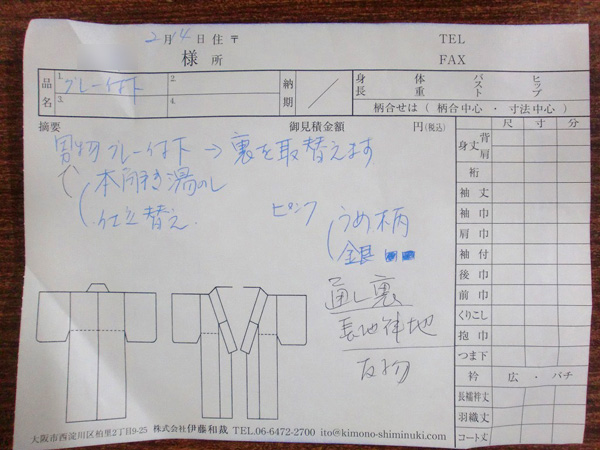 2月14日 住 〒 TEL
様 所 FAX
品名 1. グレー付下 2. 納期 身長 体重 バスト ヒップ
3. 4. 柄合せは ( 柄合中心 ・ 寸法中心 )
摘要 御見積金額 円(税込) 尺 寸 分
男物グレー付下→裏を取替えます
本解き湯のし
仕立替え
ピンク うめ柄
銀
通し裏
長襦袢地
反物
身丈 背 肩
裄
袖丈
袖巾
肩巾
袖付
後巾
前巾
くりこし
抱巾
つま下
衿 広 ・ バチ
長襦袢丈
羽織丈
コート丈
大阪市西淀川区柏里2丁目9-25 株式会社 伊藤和裁 TEL.06-6472-2700 ito@kimono-shiminuki.com